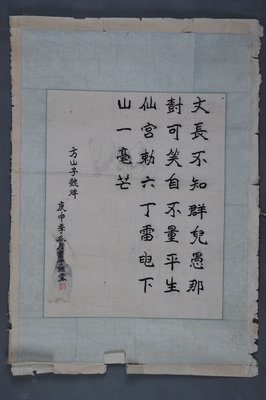 丈長不知群兒愚那
尌可笑自不量平生
仙宮勅六丁雷电下
山一毫芒
方山子魏碑
庚申季冬